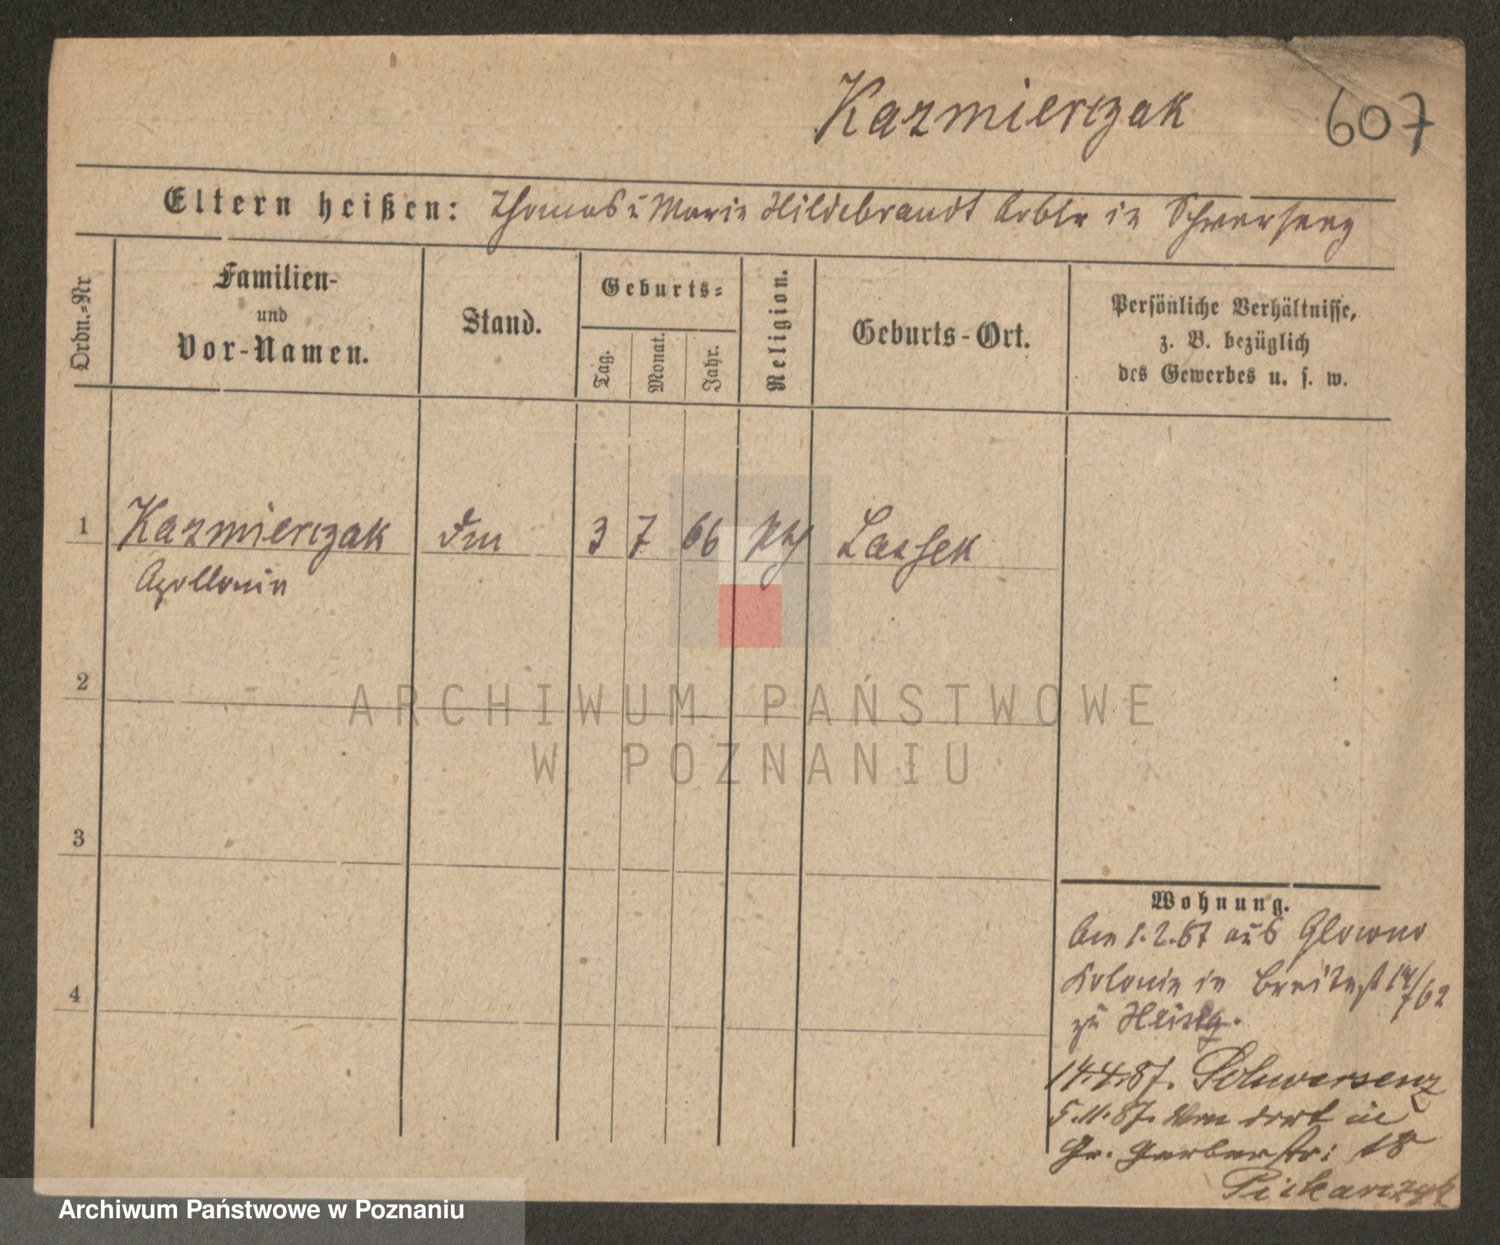 Kazmierczak 607
Eltern heißen: Thomas u Marie Hildebrandt Arbtr in Schwersenz
Ordn.-Nr
Familien-
und
Vor-Namen.
Stand.
Geburts-
Tag.
Monat.
Jahr.
Religion.
Geburts-Ort.
Persönliche Verhältnisse,
z. B. bezüglich
des Gewerbes u. s. w.
1 Kazmierczak 3 7 66 kth Lassek
Apollonia
2
ARCHIWUM PAŃSTWOWE
W POZNANIU
3
4
Wohnung.
Am 1.2.87 aus Glowno
Kolonie in Breitestr 14/
zu
14.4.87. Schwersenz
5.11.87. Von dort in
Gr. Gerberstr: 18
Piekarczyk
Archiwum Państwowe w Poznaniu